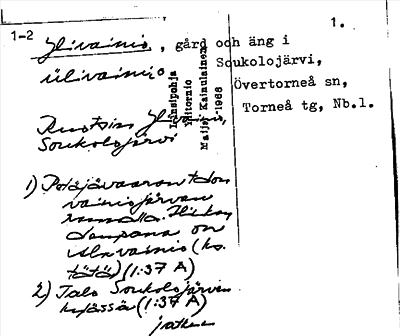 1-2
1.
Ylivainio, gård och äng i
Soukolojärvi,
Övertorneå sn,
Torneå tg, Nb.l.
ülivainio
Länsipohja
Ylitornio
Maija Kainulainen
1968
Ruotsin Ylivainio,
Soukolojärvi
1)
vainiojärven
rannalla.
on
Alavainio (ks.
tätä) (1:37 A)
2) Talo Soukolojärven
kylässä (1:37 A)
jatkuu